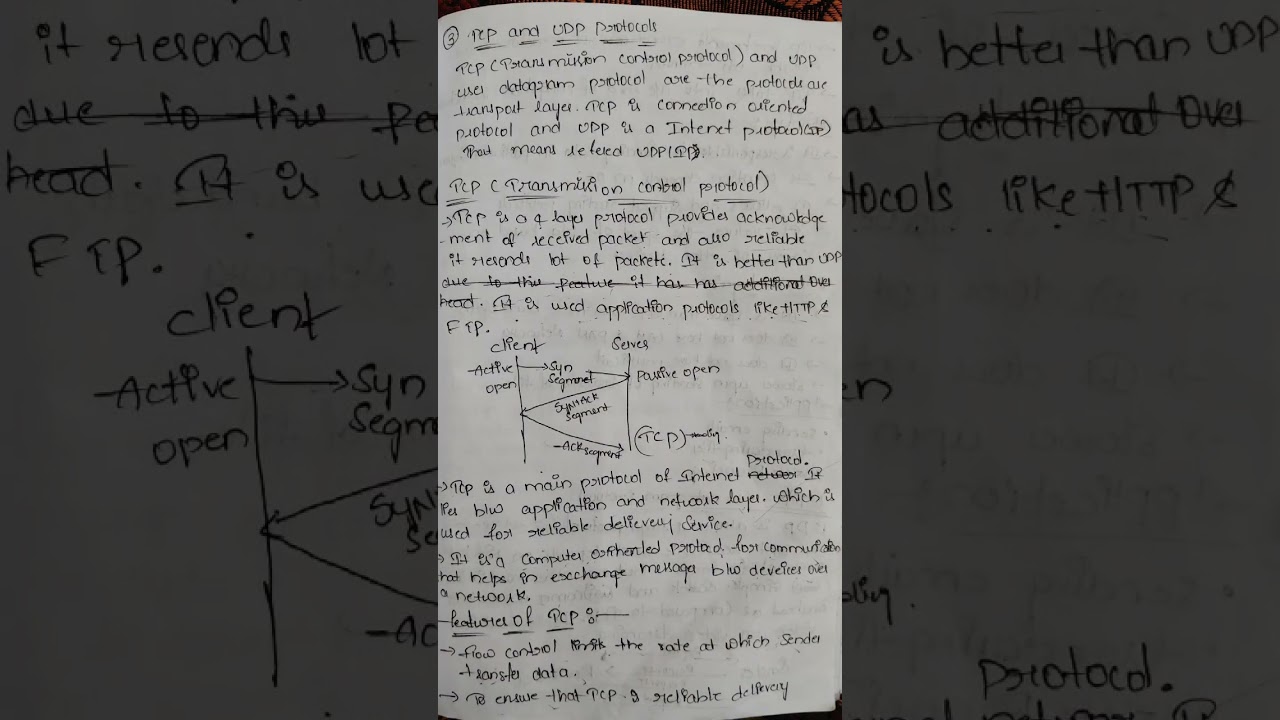 ③ TCP and UDP Protocols
TCP (Transmision control protocol) and UDP
user datagram protocol are the protocols are
transport layer. TCP is connection oriented
protocol and UDP is a Internet protocol(IP)
that means refered UDP(IP).
TCP (Transmision control protocol)
→ TCP is a 4 layer protocol provides acknowledge
-ment of received packet and also reliable
it resends lot of packets. It is better than UDP
due to this feature it has has additional over
head. It is used application protocols like HTTP &
FTP.
client Server
-Active open
→ Syn Segment
Passive open
SYN+Ack Segment
-Ack segment
(TCP)
protocol.
→ TCP is a main protocol of Internet It
lies b/w application and network layer. which is
used for reliable delievery service.
→ It is a computer protocol for communication
that helps in exchange messages b/w devices over
a network.
features of TCP :-
→ flow control limits the rate at which sender
transfer data.
→ To ensure that TCP is reliable delivery